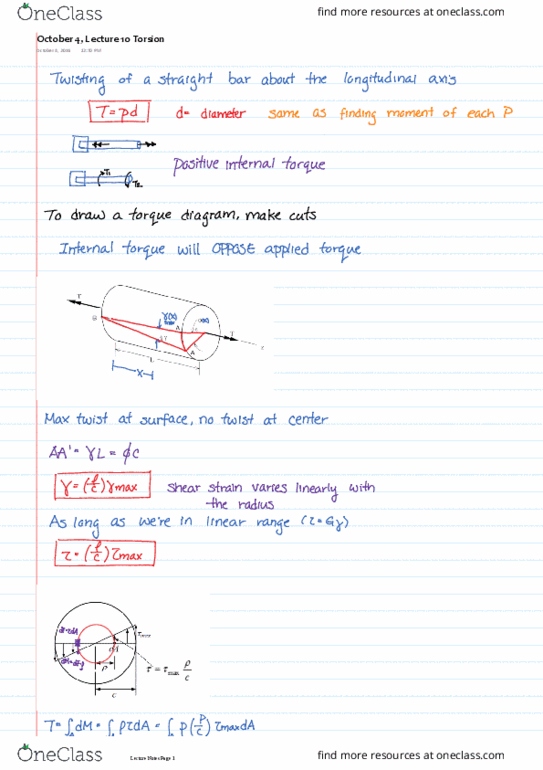 OneClass
find more resources at oneclass.com
October 4, Lecture 10 Torsion
Twisting of a straight bar about the longitudinal axis
T=pd d= diameter same as finding moment of each P
T₁
T₂
positive internal torque
To draw a torque diagram, make cuts
Internal torque will OPPOSE applied torque
T
B
γ(x)
A
A'
T
L
x
Max twist at surface, no twist at center
AA' = γL = φc
γ = (ρ/c) γmax shear strain varies linearly with
the radius
As long as we're in linear range (τ=Gγ)
τ = (ρ/c) τmax
τmax
dA
ρ
τ = τmax ρ/c
c
T = ∫A dM = ∫A ρτdA = ∫A ρ(ρ/c) τmax dA
Lecture Notes Page 1
OneClass
find more resources at oneclass.com